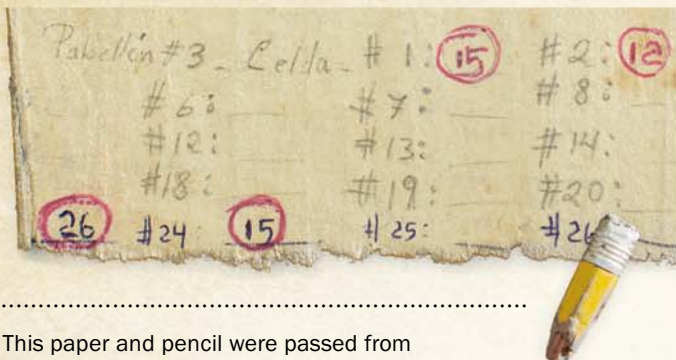 Pabellón #3 - Celda - #1: 15 #2: 12
#6: #7: #8:
#12: #13: #14:
#18: #19: #20:
26 #24: 15 #25: #26
This paper and pencil were passed from